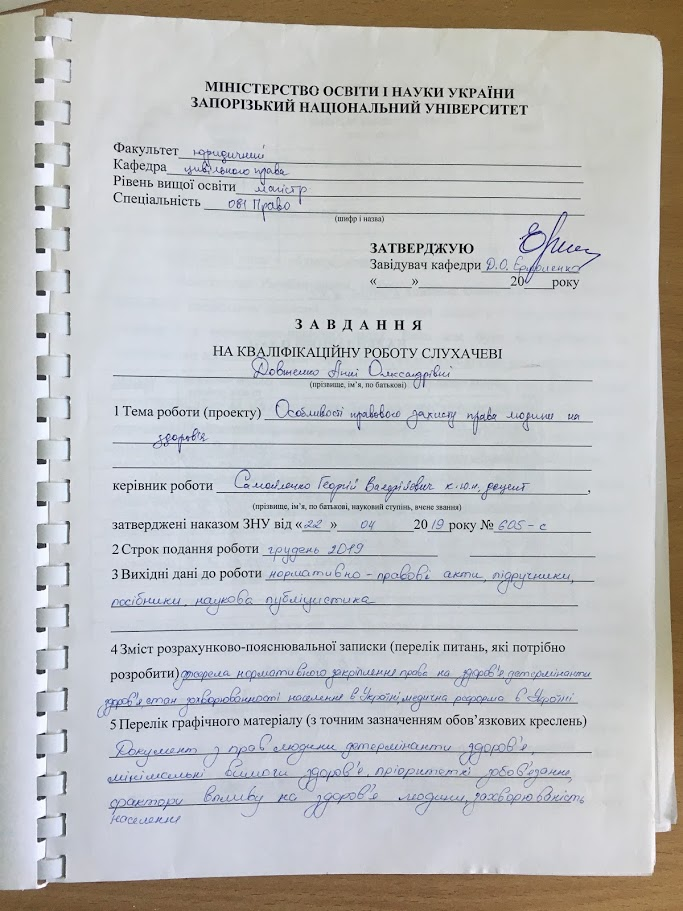 МІНІСТЕРСТВО ОСВІТИ І НАУКИ УКРАЇНИ
ЗАПОРІЗЬКИЙ НАЦІОНАЛЬНИЙ УНІВЕРСИТЕТ
Факультет юридичний
Кафедра цивільного права
Рівень вищої освіти магістр
Спеціальність 081 Право
(шифр і назва)
ЗАТВЕРДЖУЮ
Завідувач кафедри Д.О. Єрмоленко
«_____»______________20____року
З А В Д А Н Н Я
НА КВАЛІФІКАЦІЙНУ РОБОТУ СЛУХАЧЕВІ
Довженко Анні Олександрівні
(прізвище, ім’я, по батькові)
1 Тема роботи (проекту) Особливості правового захисту права людини на
здоров'я
керівник роботи Самойленко Георгій Валерійович к.ю.н, доцент,
(прізвище, ім’я, по батькові, науковий ступінь, вчене звання)
затверджені наказом ЗНУ від «22» 04 2019 року № 605-с
2 Строк подання роботи грудень 2019
3 Вихідні дані до роботи нормативно-правові акти, підручники,
посібники, наукова публіцистика
4 Зміст розрахунково-пояснювальної записки (перелік питань, які потрібно
розробити) джерела нормативного закріплення права на здоров'я, детермінанти
здоров'я, стан захворюваності населення в Україні, медична реформа в Україні
5 Перелік графічного матеріалу (з точним зазначенням обов’язкових креслень)
Документ з прав людини, детермінанти здоров'я,
мінімальні вимоги здоров'я, пріоритетні зобов'язання,
фактори впливу на здоров'я людини, захворюваність
населення